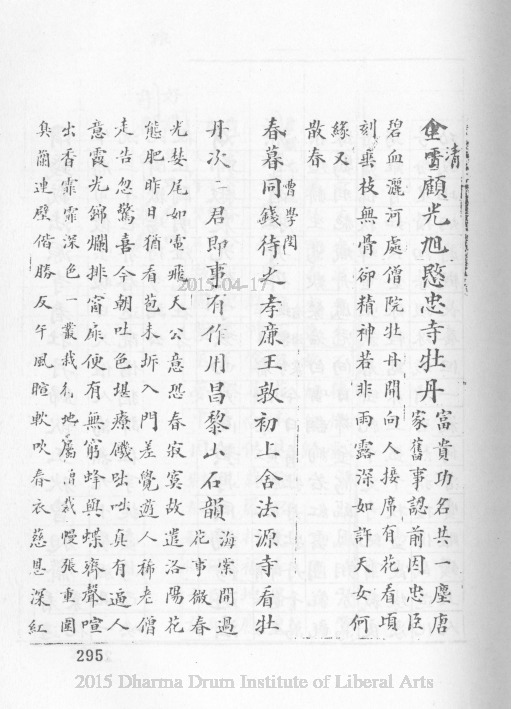 清
金雪顧光旭愍忠寺牡丹富貴功名共一塵唐
家舊事認前因忠臣
碧血灑河處僧院牡丹開向人接席有花看頃
刻乘枝無骨卻精神若非雨露深如許天女何
緣又
散春
曹學閔
春暮同錢待之孝廉王敦初上舍法源寺看牡
丹次二君即事有作用昌黎山石韻海棠開過
花事微春
光婪尾如電飛天公意恐春寂寞故遣洛陽花
態肥昨日猶看苞未坼入門差覺遊人稀老僧
走告忽驚喜今朝吐色堪療饑咄咄真有逼人
意霞光錦爛排窗扉便有無窮蜂與蝶齊聲喧
出香霏霏深色一叢栽何地屬僧栽幔張重圍
臭蘭連壁偕勝友午風暄軟吹春衣慈恩深紅
295
2015-04-17
2015 Dharma Drum Institute of Liberal Arts